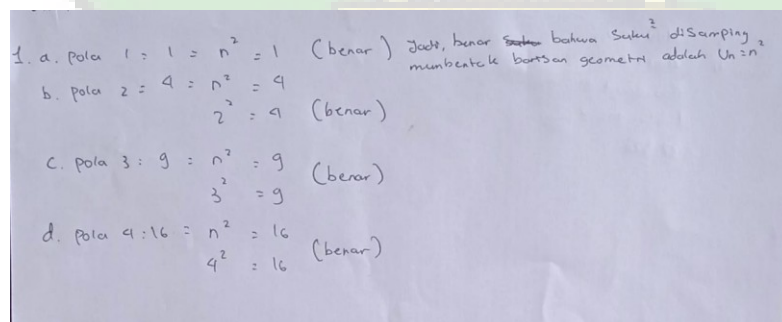 1. a. pola 1 = 1 = n² = 1 (benar) Jadi, benar bahwa suku² disamping
membentuk barisan geometri adalah Un = n²
b. pola 2 = 4 = n² = 4
2² = 4 (benar)
c. pola 3 : 9 = n² = 9
3² = 9 (benar)
d. pola 4 : 16 = n² = 16
4² = 16 (benar)